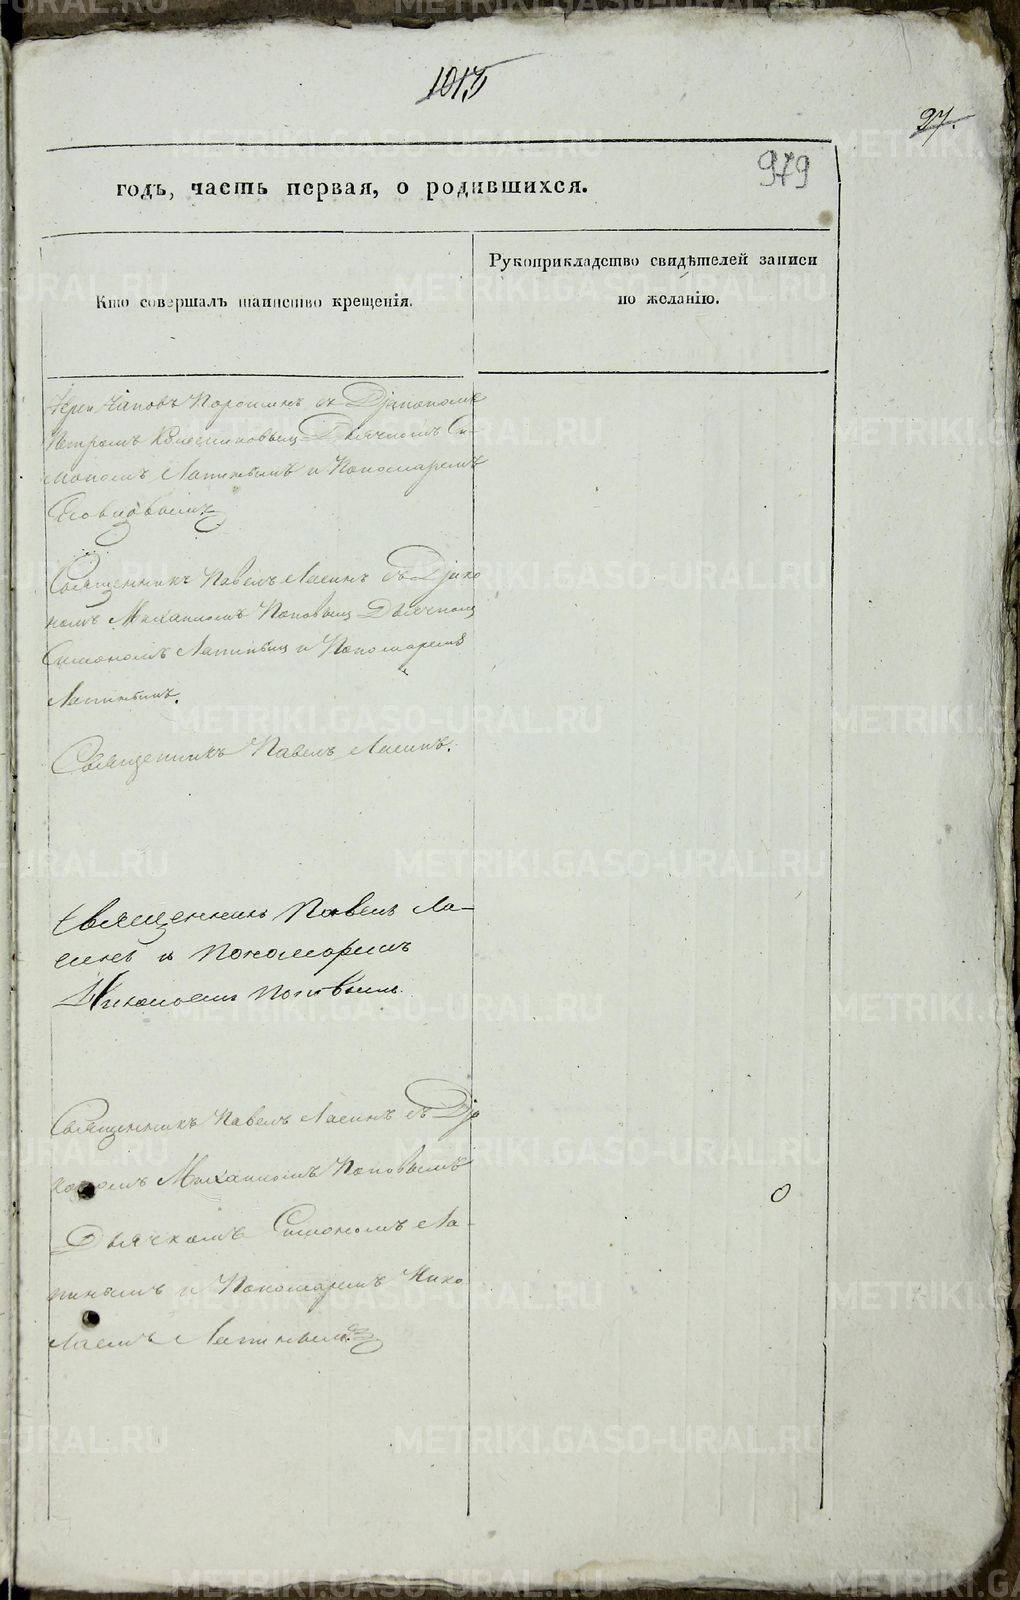 1015
97.
979
годъ, часть первая, о родившихся.
Кто совершалъ таинство крещенія.
Рукоприкладство свидѣтелей записи
по желанію.
съ Діакономъ
Петромъ Дьячкомъ Си-
мономъ Лапинымъ и Пономаремъ
Священникъ Павелъ Ласинъ съ Діако
номъ Михаиломъ Поповымъ Дьячкомъ
Симономъ Лапинымъ и Пономаремъ
Лапинымъ.
Священникъ Павелъ Ласинъ.
Священникъ Павелъ Ла-
синъ и Пономаремъ
Николаемъ Поповымъ.
Священникъ Павелъ Ласинъ съ Діа
кономъ Михаиломъ Поповымъ
Дьячкомъ Симономъ Ла-
пинымъ и Пономаремъ Нико
лаемъ Лапинымъ.
METRIKI.GASO-URAL.RU